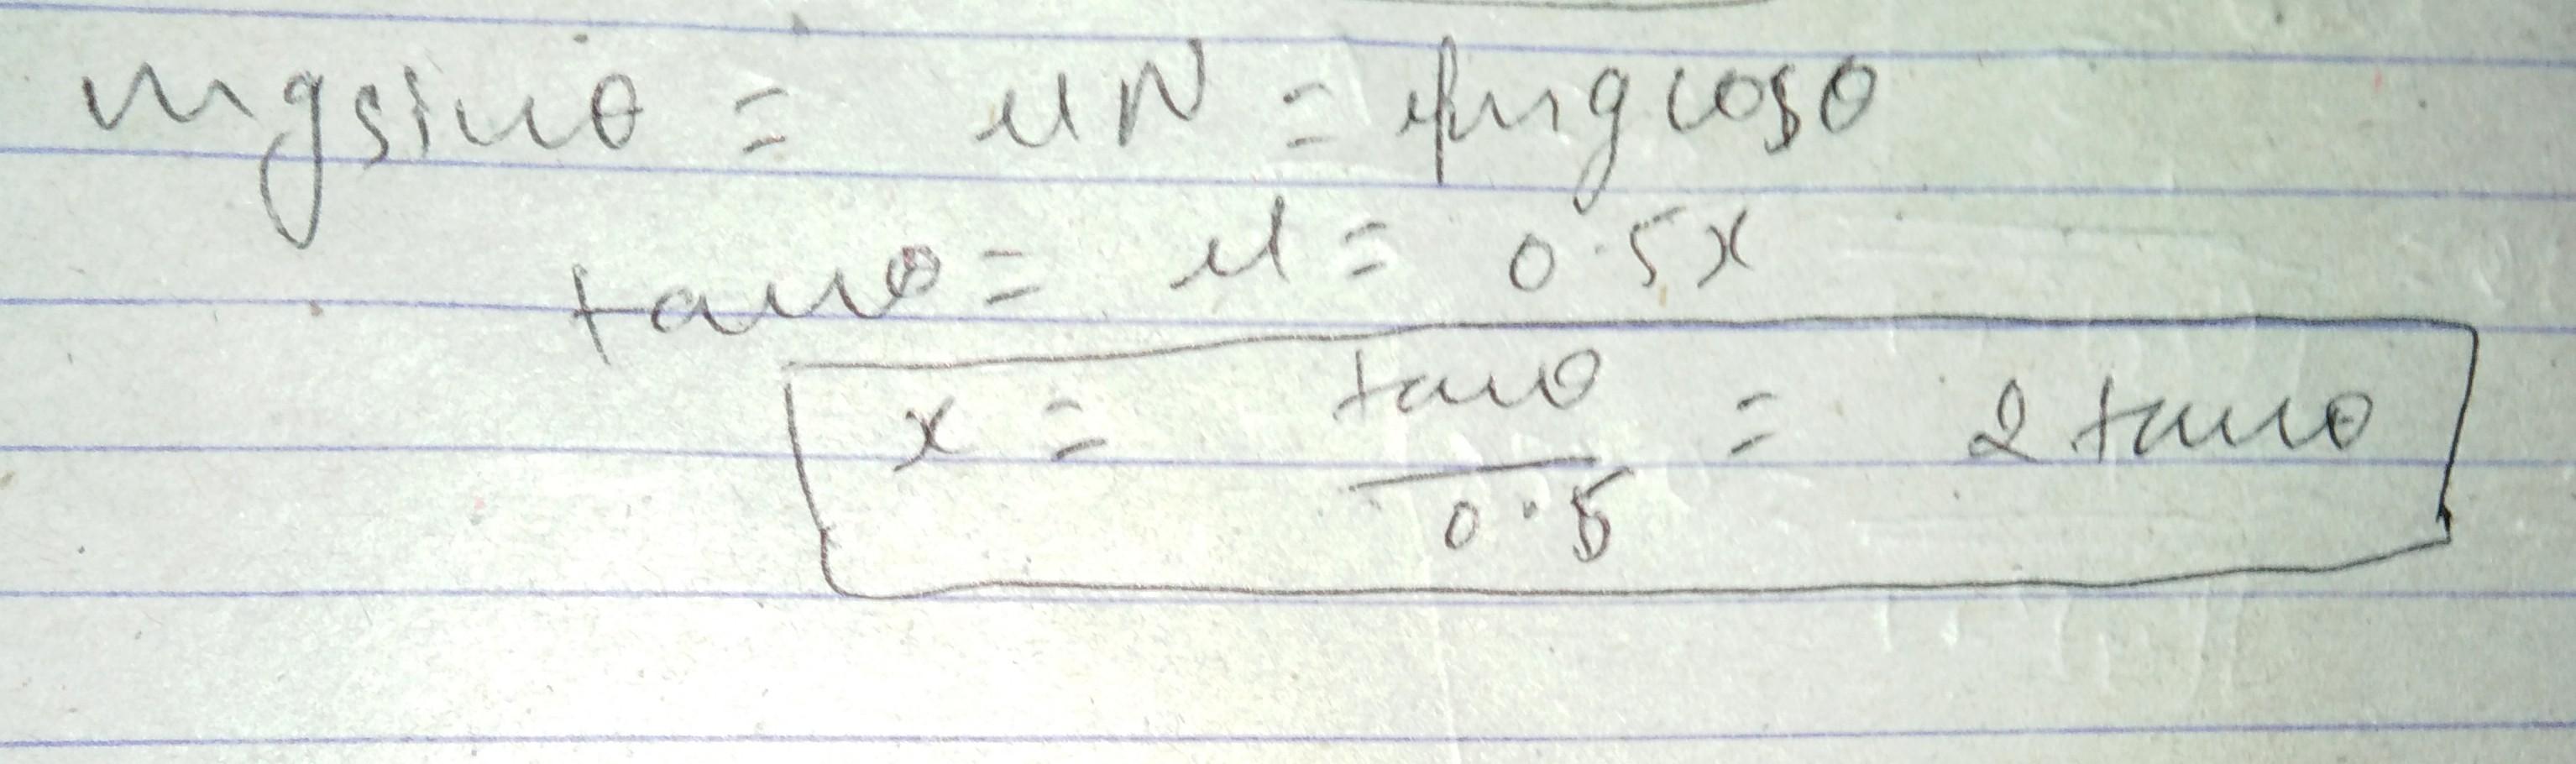 mg sinθ = μN = μmg cosθ
tanθ = μ = 0.5x
x = tanθ / 0.5 = 2 tanθ